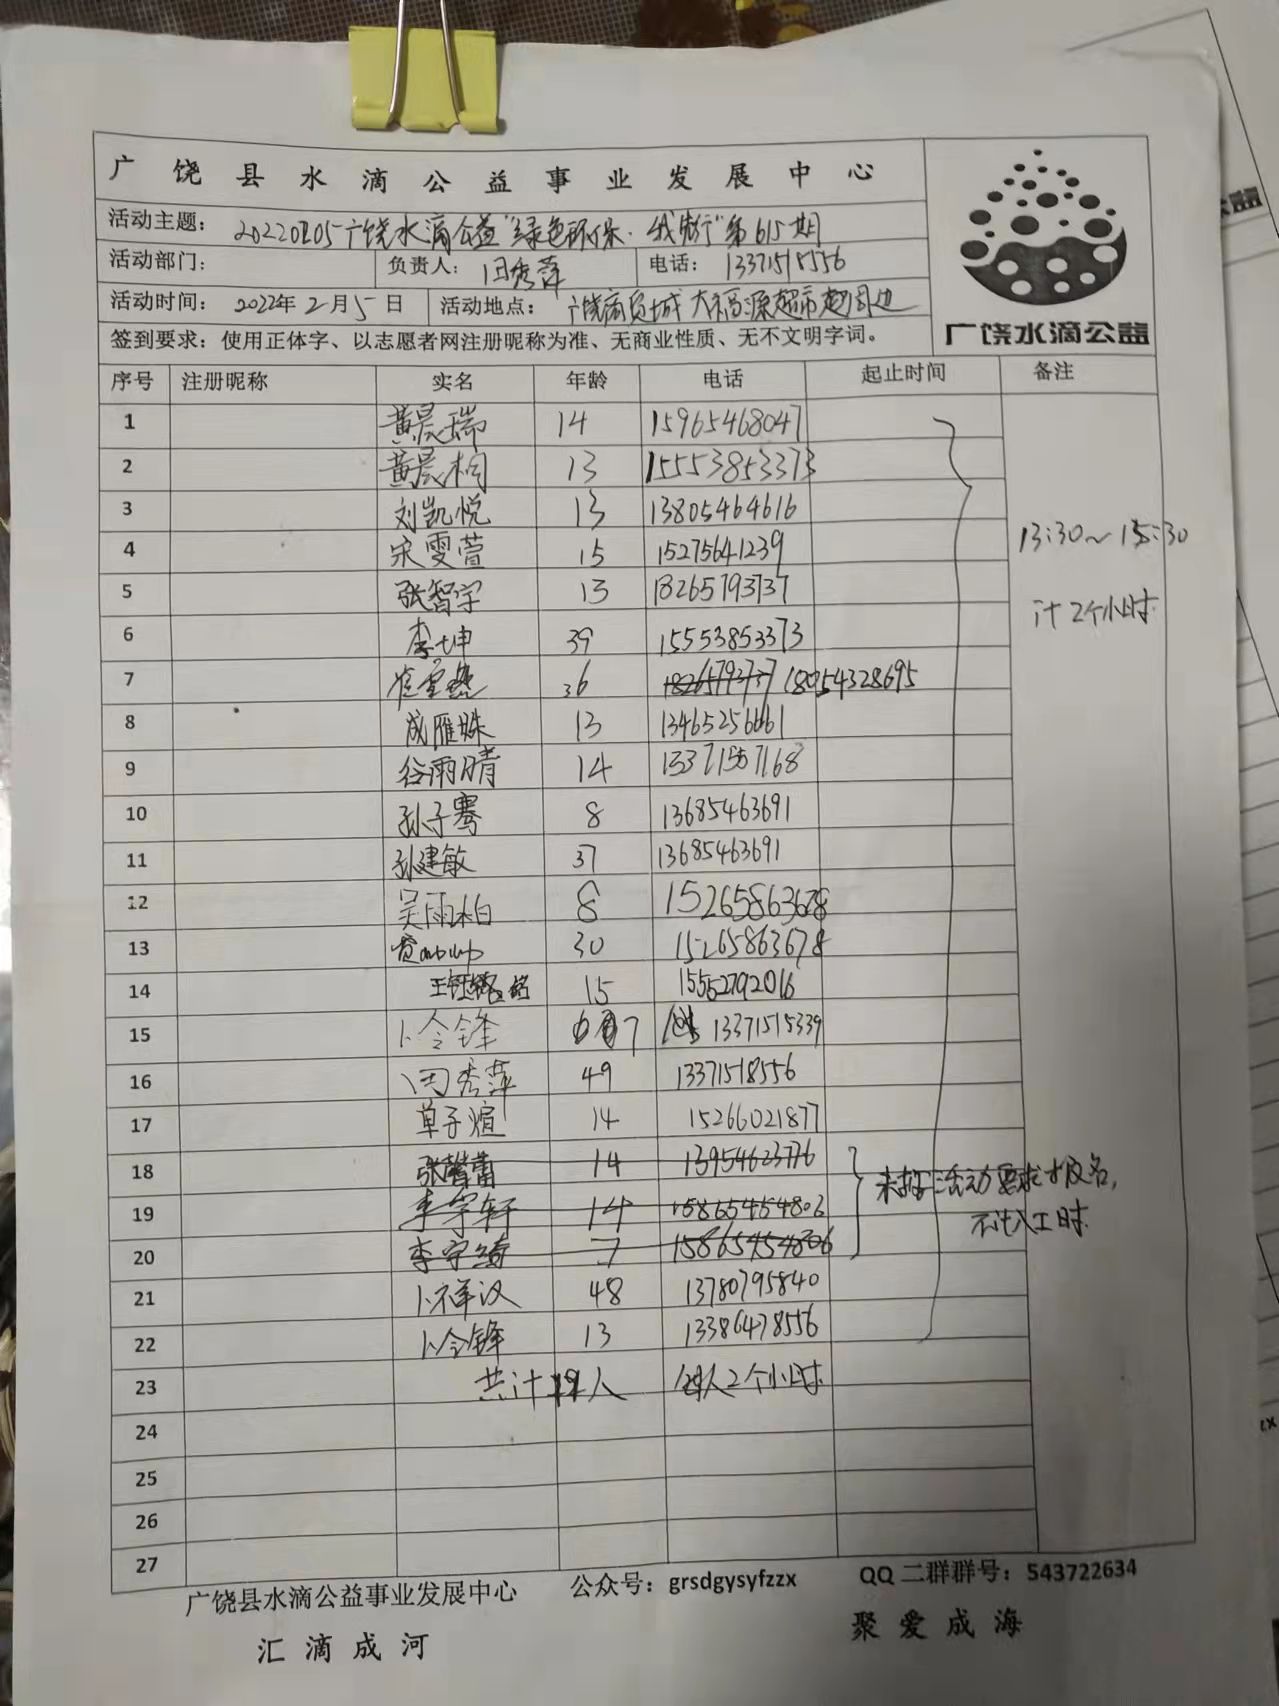 广饶县水滴公益事业发展中心
活动主题：20220205广饶水滴公益“绿色环保·我先行”第615期
活动部门： 负责人：闫秀萍 电话：13371518556
活动时间：2022年2月5日 活动地点：广饶商贸城大福源超市超周边
广饶水滴公益
签到要求：使用正体字、以志愿者网注册昵称为准、无商业性质、无不文明字词。
序号 注册昵称 实名 年龄 电话 起止时间 备注
1 黄晨瑞 14 15965468047
2 黄晨 13 15553853373
3 刘凯悦 13 13805464616
4 宋雯萱 15 15275641239
13:30～15:30
5 张智宇 13 18265793737
计2个小时
6 李坤 39 15553853373
7 崔 36 18265793737 18054328695
8 成雁姝 13 13465256661
9 谷雨晴 14 13371557168
10 孙子骞 8 13685463691
11 孙建敏 37 13685463691
12 吴雨柏 8 15265863678
13 30 15265863678
14 王钰铭 15 15552792016
15 卜令锋 7 13371515339
16 闫秀萍 49 13371518556
17 单子煊 14 15266021877
18 张馨蕾 14 13954623776
未按活动要求报名，
19 李宇轩 14 15865454806
不计入工时
20 李宇绮 7 15865454806
21 卜祥汉 48 13780795840
22 卜令锋 13 13386478556
23 共计19人 19人2个小时
24
25
26
27
广饶县水滴公益事业发展中心 公众号：grsdgysyfzzx QQ二群群号：543722634
汇滴成河 聚爱成海